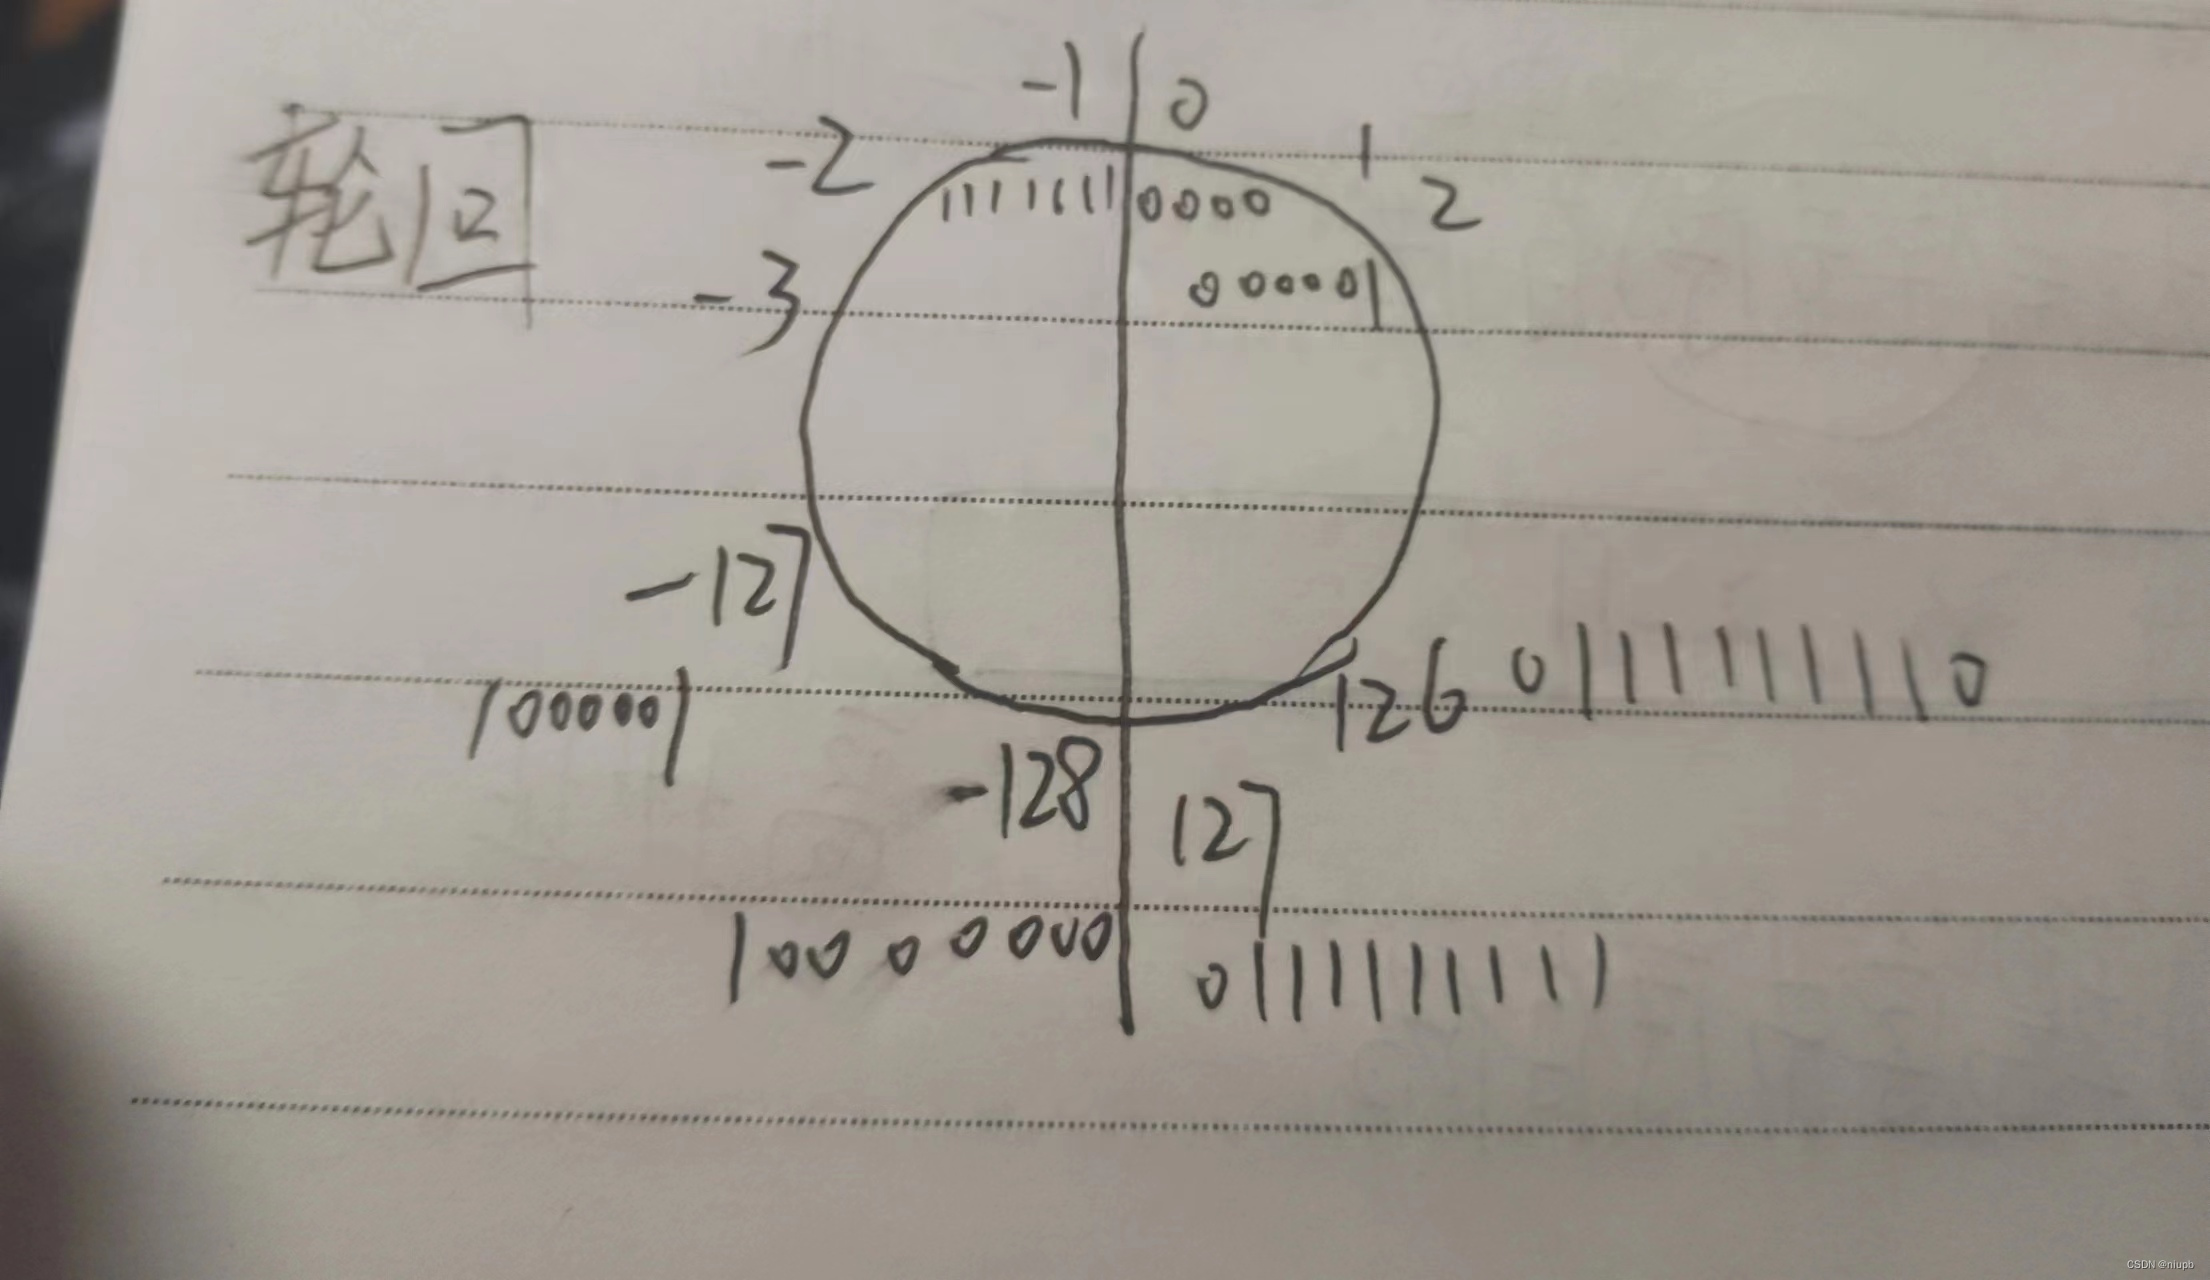 轮回
-1 0
-2 1
2
1111111 0000
-3 000001
-127
1000001 126 0111111110
-128 127
10000000 0111111111
CSDN @niupb